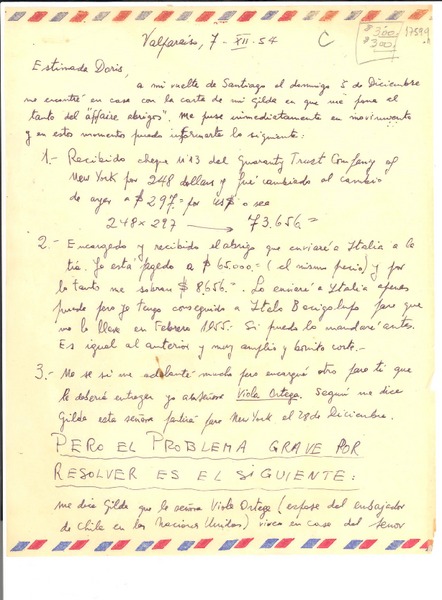 $300.=
$300.=
17599
C
Valparaíso, 7 - XII - 54
Estimada Doris,
a mi vuelta de Santiago el domingo 5 de Diciembre
me encontré en casa con la carta de mi Gilda en que me pone al
tanto del "affaire abrigos". Me puse inmediatamente en movimiento
y en este momento puedo informarte lo siguiente:
1.- Recibido cheque N°13 del Guaranty Trust Company of
New York por 248 dollars y fué cambiado al cambio
de ayer a $297.= por US$ o sea
248 x 297 → 73.656.=
2.- Encargado y recibido el abrigo que enviaré a Italia a la
tía. Ya está pagado a $65.000.= (el mismo precio) y por
lo tanto me sobran $8.656.=. Lo enviaré a Italia apenas
pueda pero ya tengo conseguido a Italo Bacigalupo para que
me lo lleve en Febrero 1955. Si puedo lo mandaré antes.
Es igual al anterior y muy amplio y bonito corte.
3.- No se si me adelanté mucho pero encargué otro para ti que
lo deberá entregar yo a la señora Viola Ortega. Según me dice
Gilda esta señora partirá para New York el 28 de Diciembre.
PERO EL PROBLEMA GRAVE POR
RESOLVER ES EL SIGUIENTE:
me dice Gilda que la señora Viola Ortega (esposa del embajador
de Chile en las Naciones Unidas) vive en casa del señor